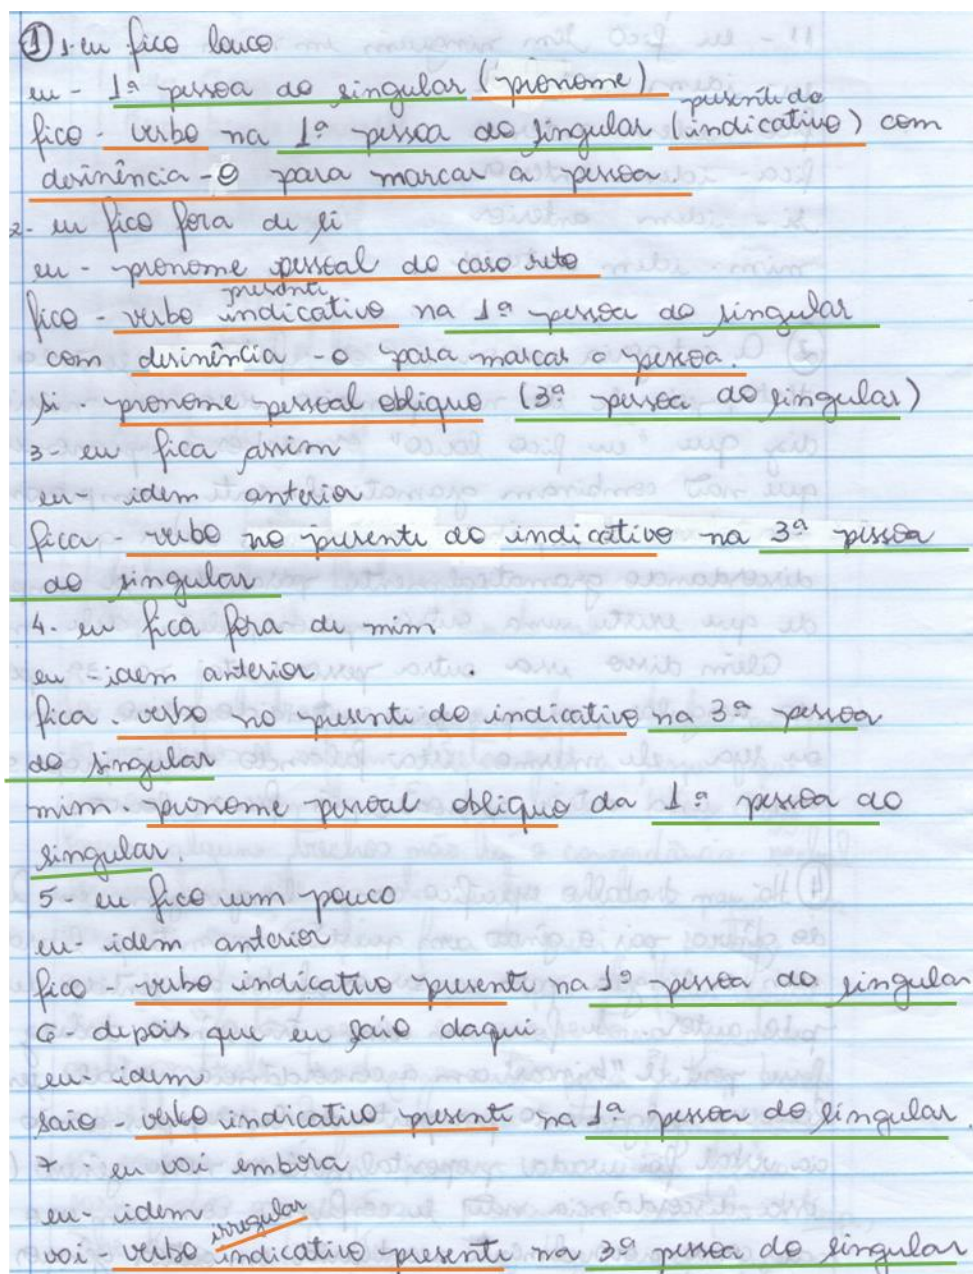 ① 1- eu fico louco
eu - 1ª pessoa do singular (pronome)
presente do
fico - verbo na 1ª pessoa do singular (indicativo) com
desinência -o para marcar a pessoa
2- eu fico fora de si
eu - pronome pessoal do caso reto
presente
fico - verbo indicativo na 1ª pessoa do singular
com desinência -o para marcar a pessoa.
si - pronome pessoal oblíquo (3ª pessoa do singular)
3- eu fica assim
eu- idem anterior
fica - verbo no presente do indicativo na 3ª pessoa
do singular
4- eu fica fora de mim
eu - idem anterior.
fica - verbo no presente do indicativo na 3ª pessoa
do singular
mim - pronome pessoal oblíquo da 1ª pessoa do
singular.
5- eu fico um pouco
eu- idem anterior
fico - verbo indicativo presente na 1ª pessoa do singular
6 depois que eu saio daqui
eu- idem
saio - verbo indicativo present na 1ª pessoa do singular.
7- eu vai embora
eu- idem
irregular
vai - verbo indicativo presente na 3ª pessoa do singular